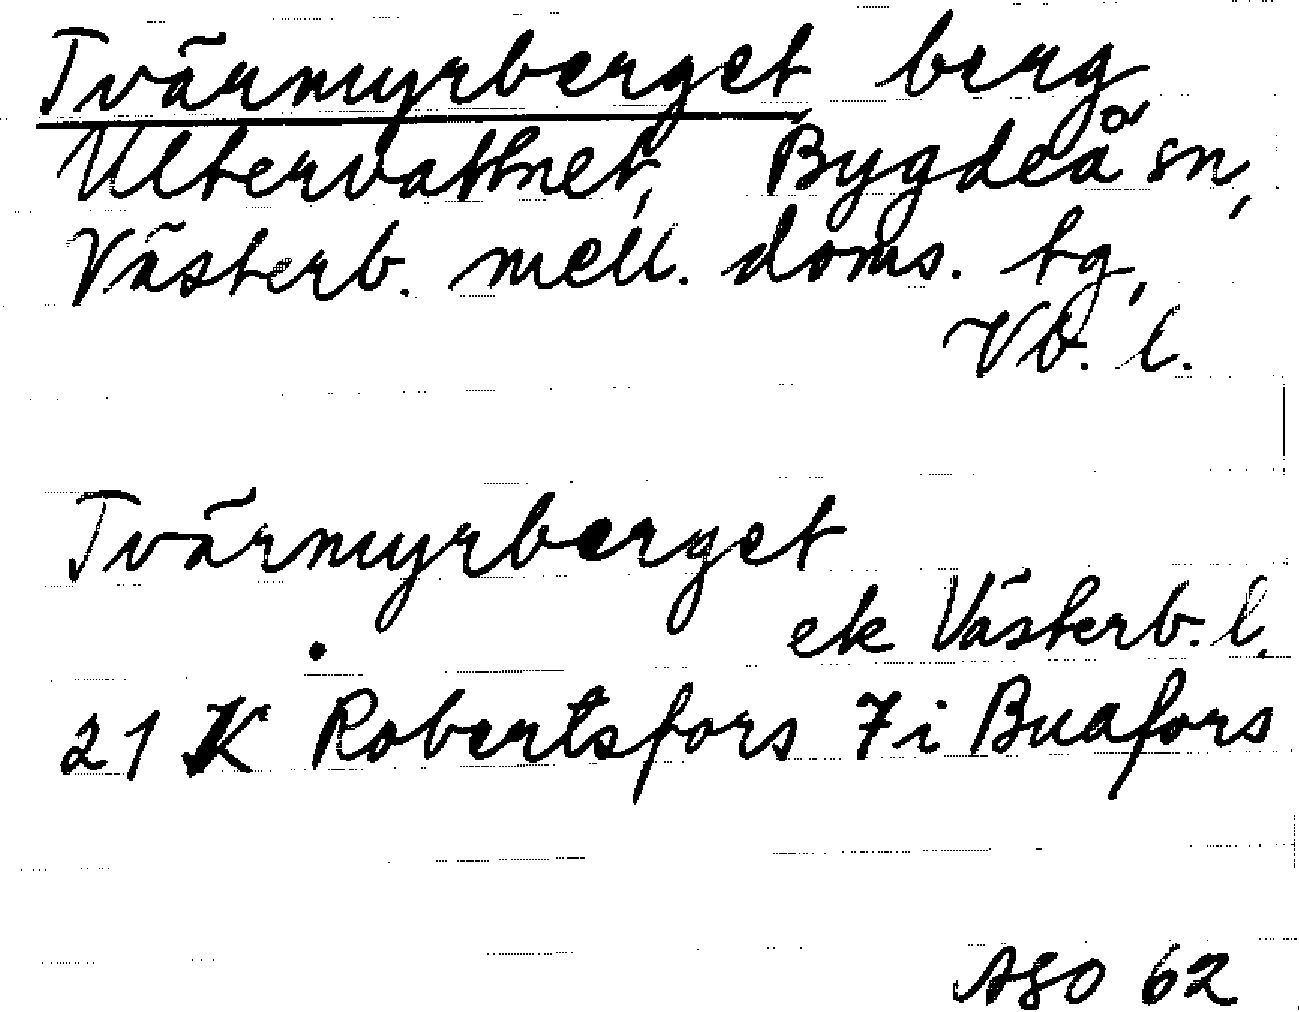 Tvärmyrberget berg
Ultervattnet, Bygdeå sn,
Västerb. mell. doms. tg,
Vb. l.
Tvärmyrberget
ek Västerb. l.
21 K Robertsfors 7 i Buafors
ASO 62